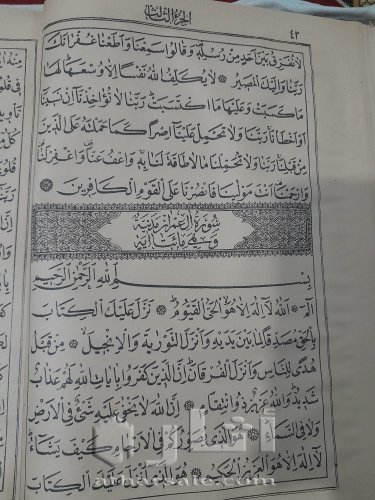 الجزء الثالث
٤٢
لا نفرق بين احد من رسله وقالوا سمعنا واطعنا غفرانك
ربنا واليك المصير * لا يكلف الله نفسا الا وسعها لها
ما كسبت وعليها ما اكتسبت ربنا لا تؤاخذنا ان نسينا
او اخطأنا ربنا ولا تحمل علينا اصرا كما حملته على الذين
من قبلنا ربنا ولا تحملنا ما لا طاقة لنا به واعف عنا واغفر لنا
وارحمنا انت مولينا فانصرنا على القوم الكافرين *
سورة آل عمران مدنية
وهي مائتا آية
بسم الله الرحمن الرحيم
الم * الله لا اله الا هو الحي القيوم * نزل عليك الكتاب
بالحق مصدقا لما بين يديه وانزل التورية والانجيل * من قبل
هدى للناس وانزل الفرقان ان الذين كفروا بايات الله لهم عذاب
شديد والله عزيز ذو انتقام * ان الله لا يخفى عليه شئ في الارض
ولا في السماء * هو الذي يصوركم في الارحام كيف يشاء
لا اله الا هو العزيز الحكيم * هو الذي انزل عليك الكتاب